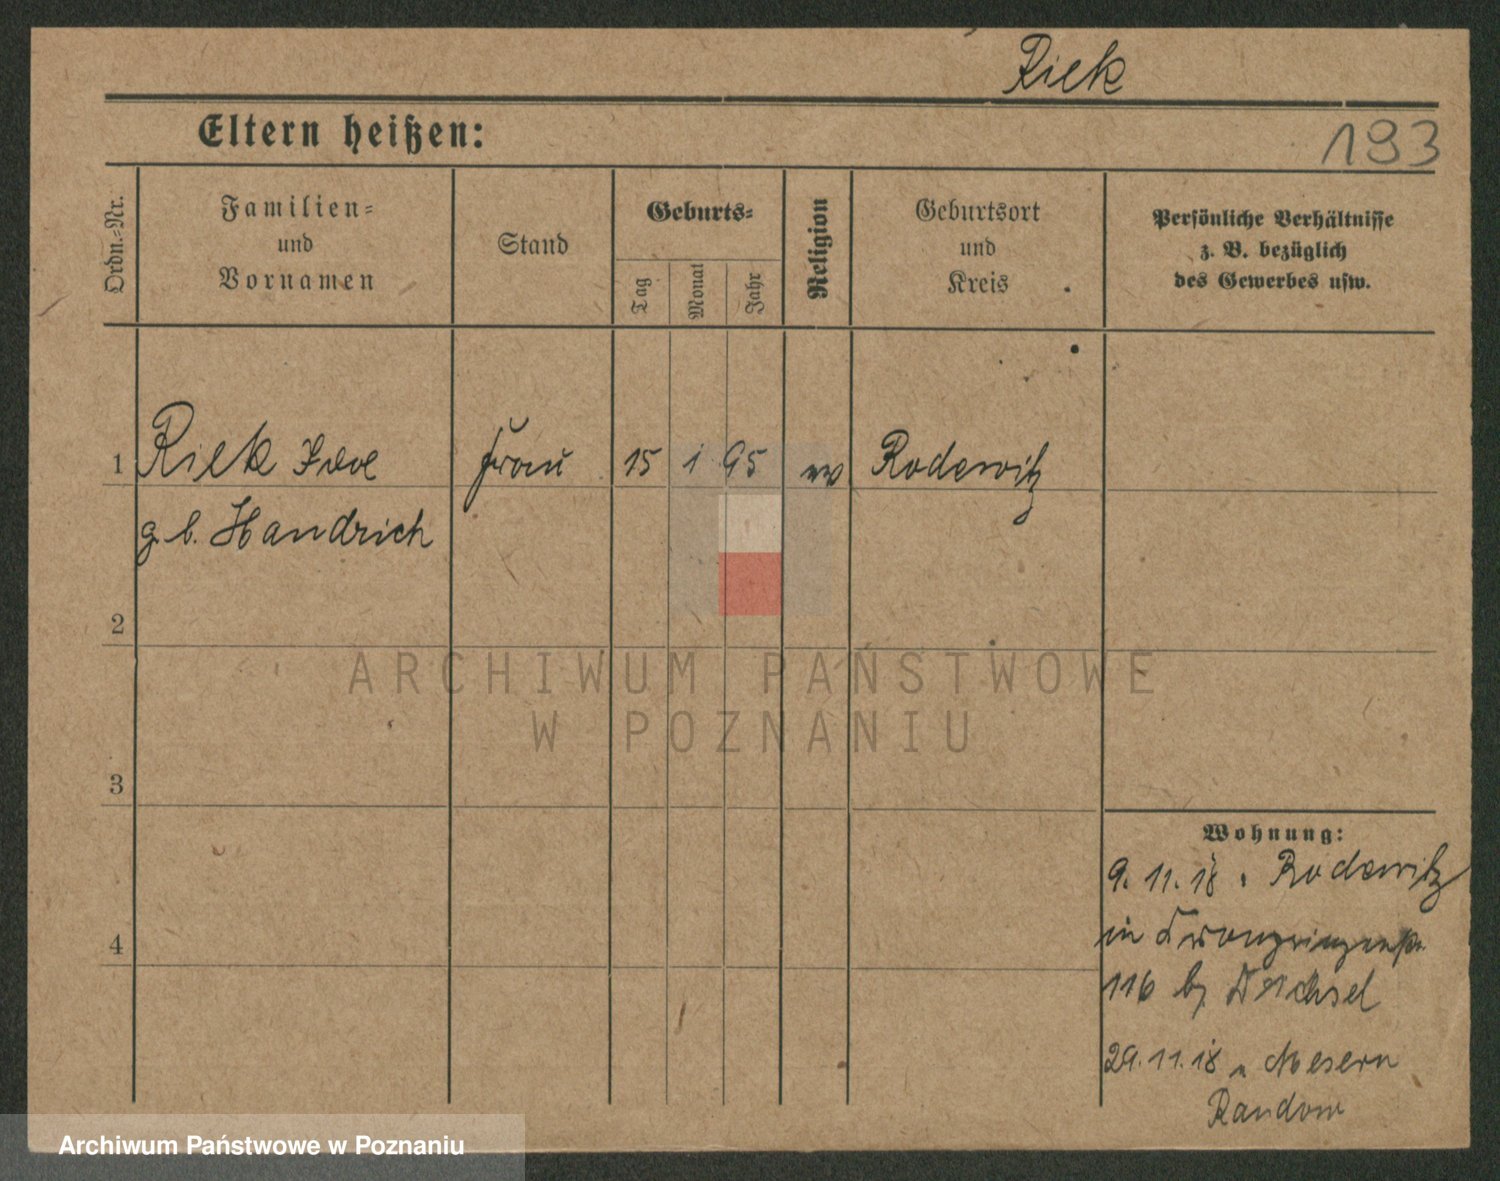 Riek
Eltern heißen:
193
Ordn.-Nr.
Familien-
und
Vornamen
Stand
Geburts-
Tag
Monat
Jahr
Religion
Geburtsort
und
Kreis
Persönliche Verhältnisse
z. B. bezüglich
des Gewerbes usw.
1 Riek Frau 15 1 95 ev Rodewitz
g. b. Handrich
2
3
4
Wohnung:
9. 11. 18 Rodewitz
in Kronprinzenstr.
116 b/
29. 11. 18 n
Randow
ARCHIWUM PAŃSTWOWE
W POZNANIU
Archiwum Państwowe w Poznaniu